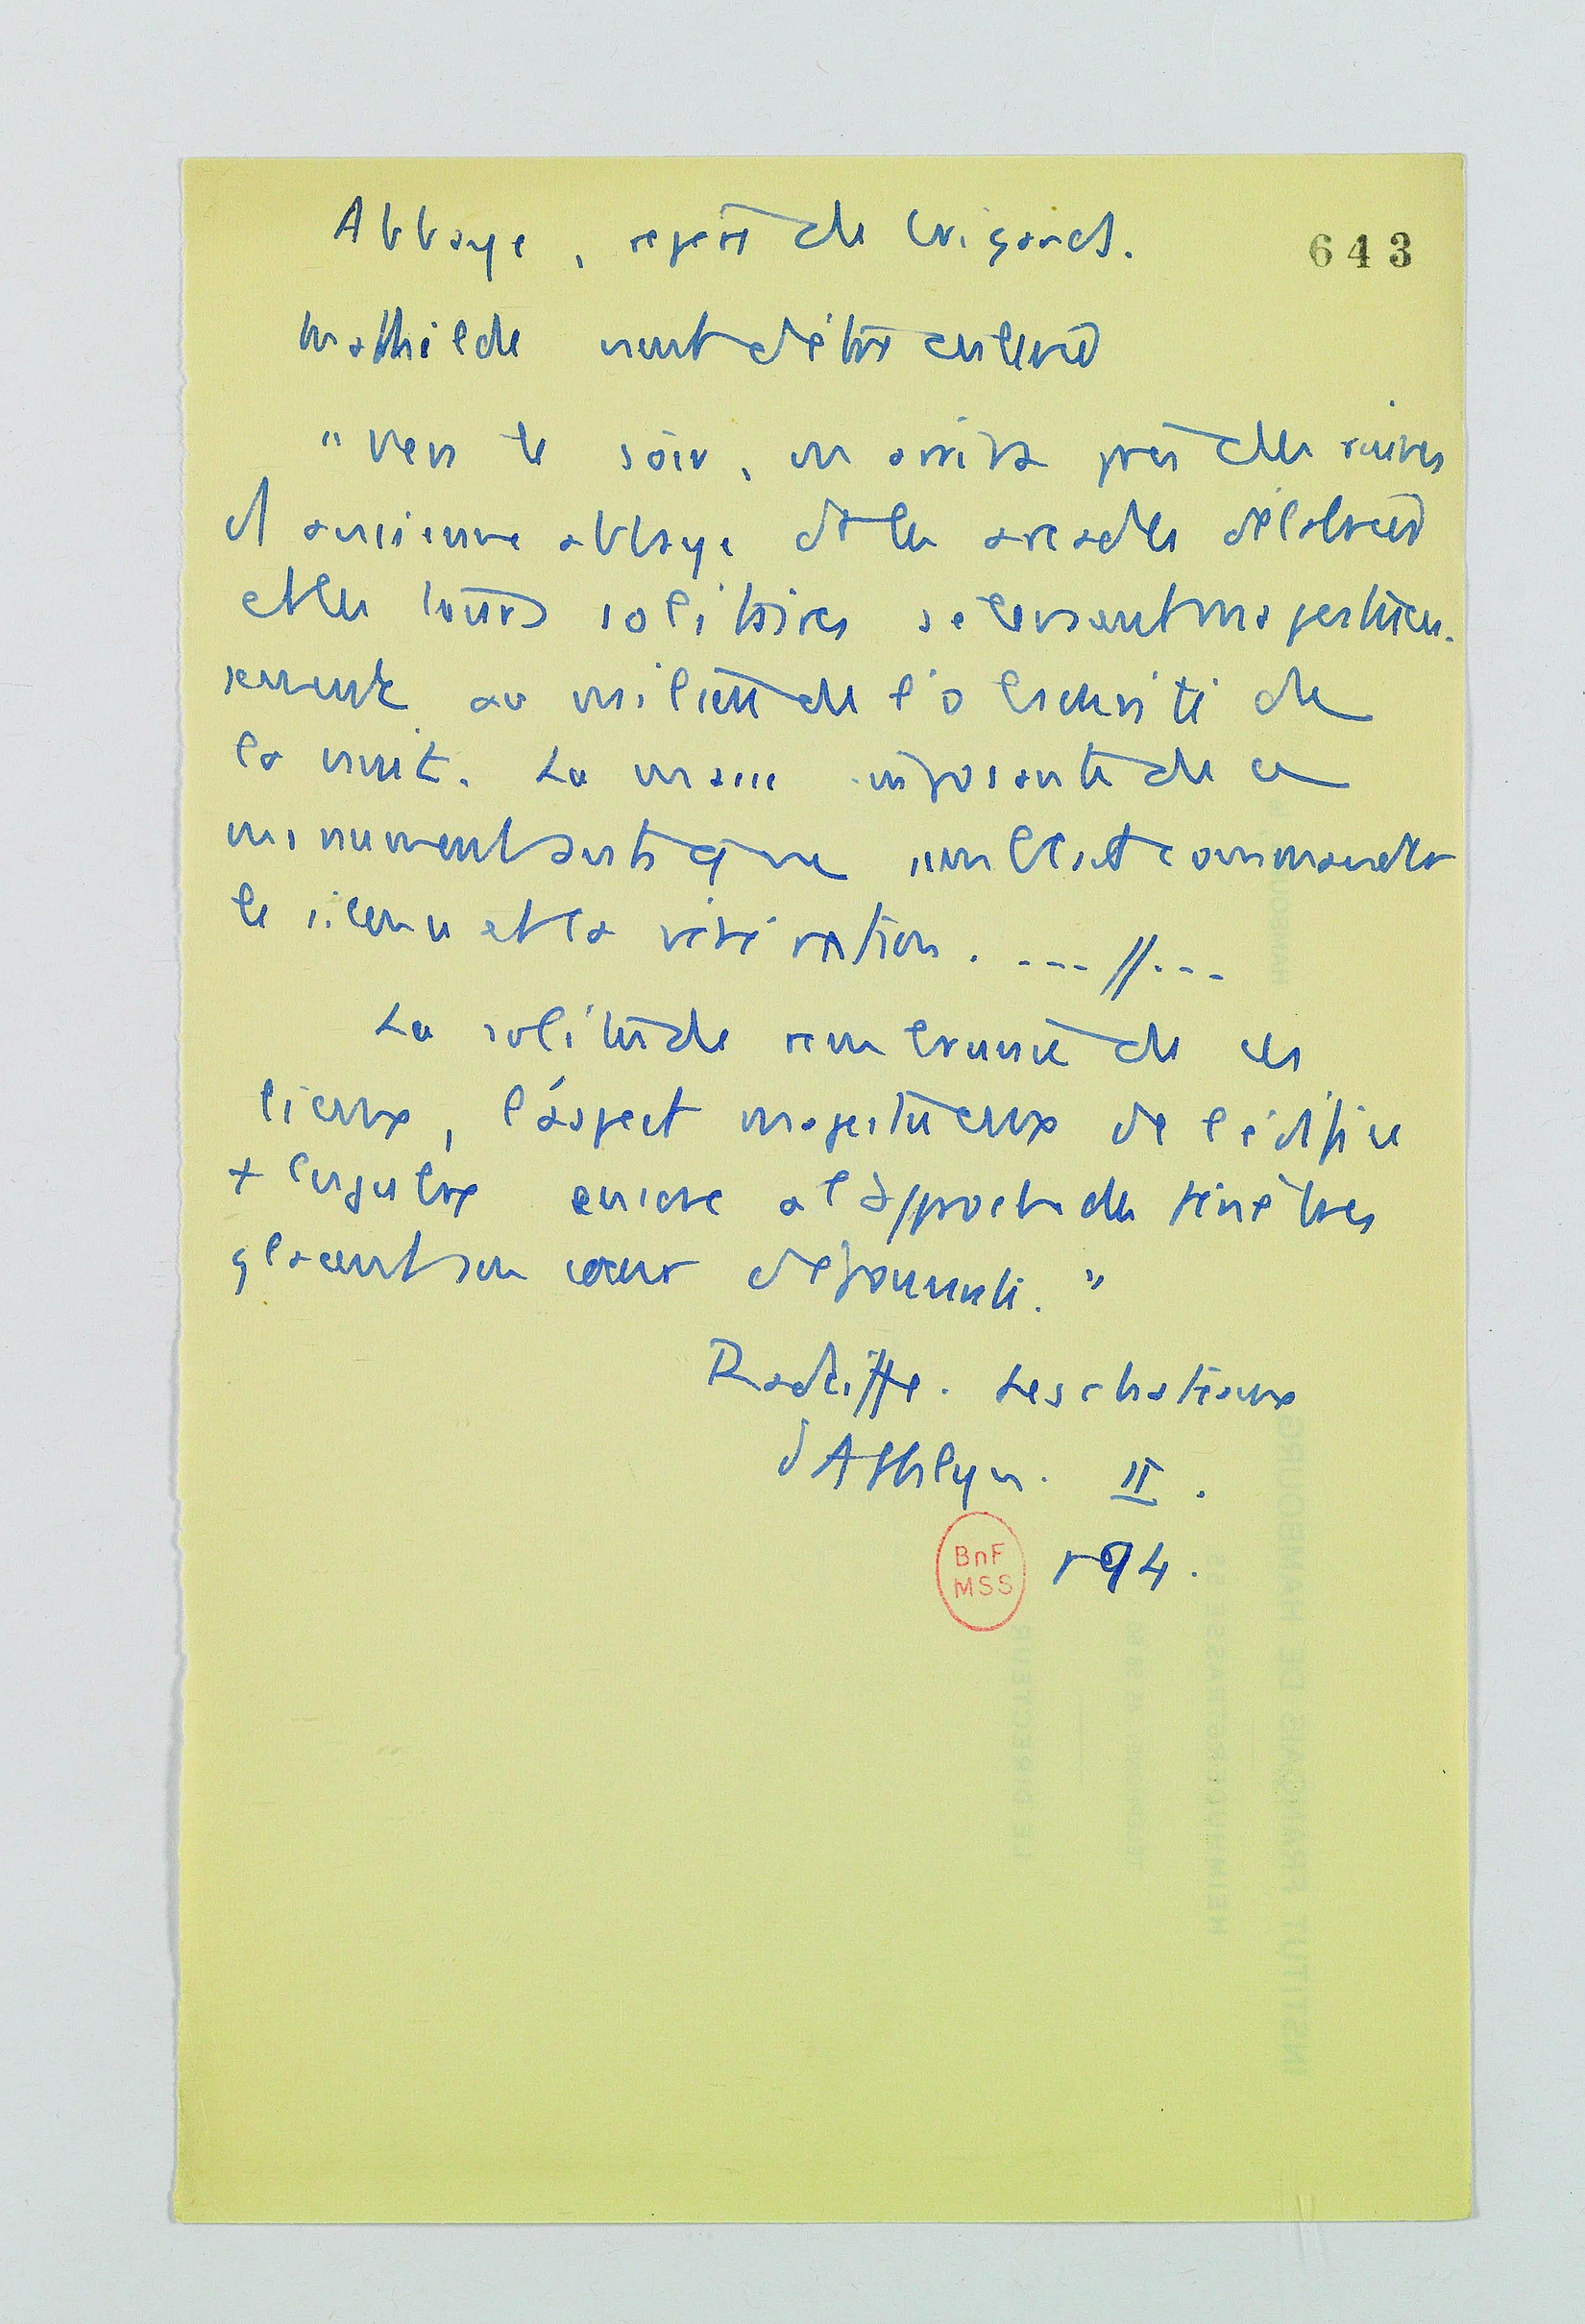 Abbaye, repère de brigands.
643
Mathilde vient d'être enlevée
"Vers le soir, on arriva près des ruines
d'ancienne abbaye dt les arcades délabrées
et les tours solitaires s'élevaient majestueu-
sement au milieu de l'obscurité de
la nuit. La masse imposante de ce
monument antique semblait commander
le silence et la vénération. --- // ---
La solitude rembrunie de ces
lieux, l'aspect majestueux de l'édifice
+ lugubre encore à l'approche des ténèbres
glacent son cœur d'épouvante."
Radcliffe. Les chateaux
d'Athlyn. II.
194.
BnF
MSS
INSTITUT FRANÇAIS DE HAMBOURG
LE DIRECTEUR